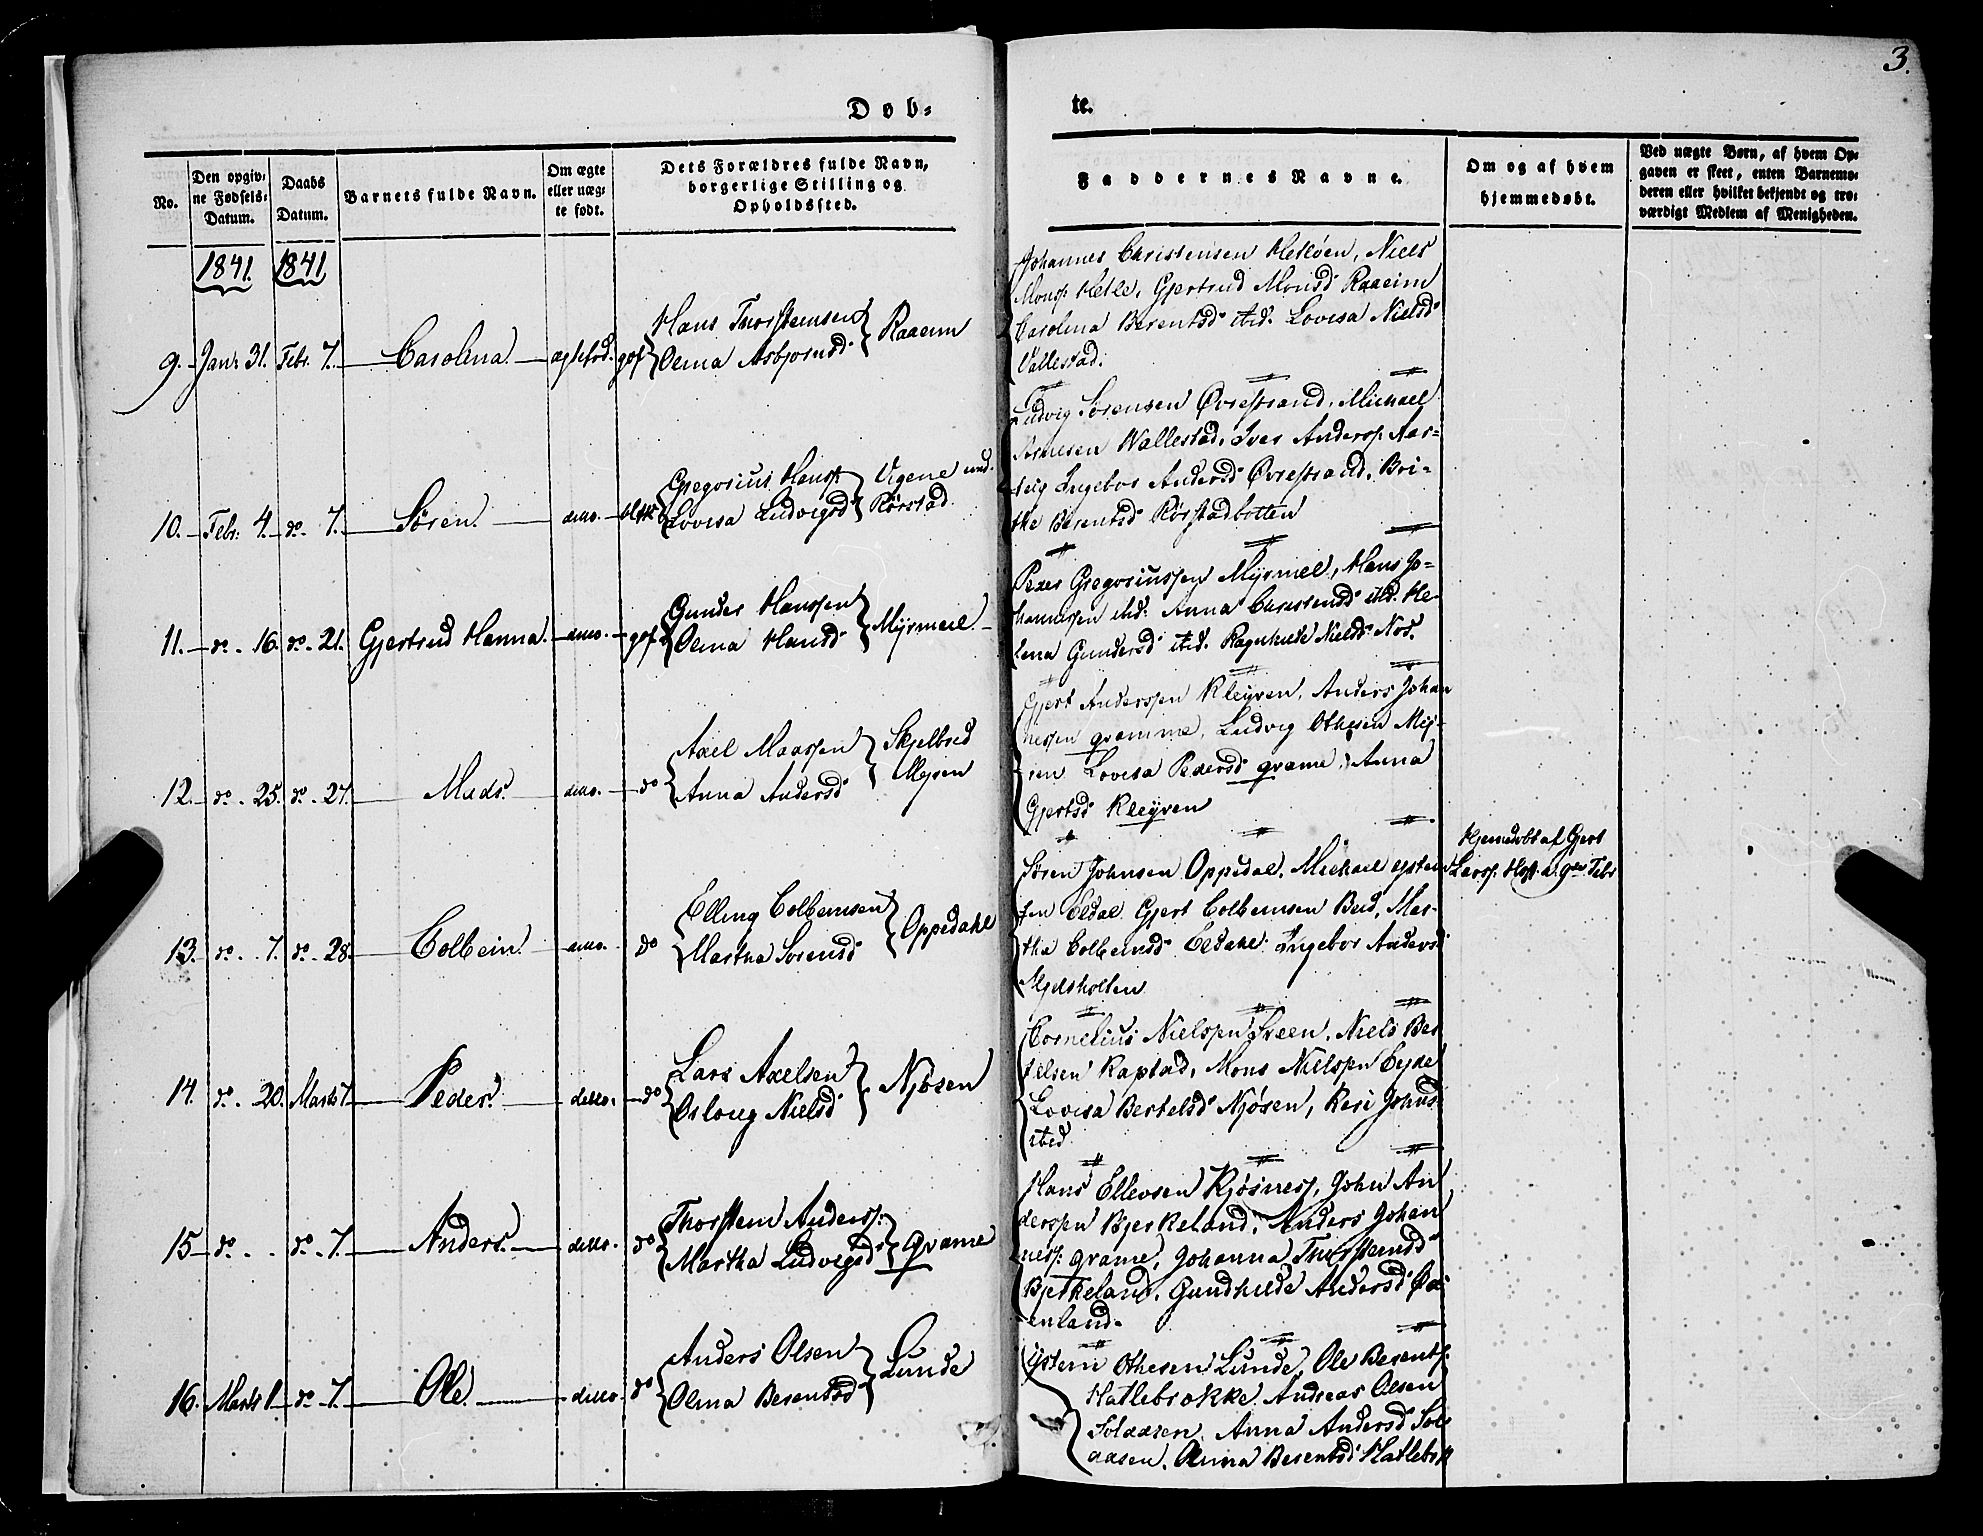 3.
Døb=
te.
No.
Den opgiv=
ne Fødsels=
Datum.
Daabs
Datum.
Barnets fulde Navn.
Om ægte
eller uæg=
te født.
Dets Forældres fulde Navn,
borgerlige Stilling og
Opholdssted.
Faddernes Navne.
Om og af hvem
hjemmedøbt.
Ved uægte Børn, af hvem Op=
gaven er skeet, enten Barnemo=
deren eller hvilket bekjendt og tro=
værdigt Medlem af Menigheden.
1841. 1841
9. Janr 31. Febr. 7. Carolina. ægtefød. gf
Hans Thorsteinsen
Olina Asbjornsd
Raaeim
Johannes Christensen Hetleøen, Niels
Monss Hetle, Gjertrud Monsd Raaeim
Carolina Berentsd ibid. Lovisa Nielsd
Vallestad.
10. Febr. 4. do 7. Søren. ditto
Gregorius Hanss
Lovisa Ludvigsd
Vigene und.
Rørstad
Ludvig Sørensen Øvrestrand, Michael
Wallestad, Iver Anderss. Aar=
Ingebor Andersd Øvrestrand, Bri=
the Berentsd Rørstadbotten
11. do 16. do 21. Gjertrud Hanna. ditto gf
Gunder Hanssen
Olina Hansd
Myrmell
Peder Gregoriussen Myrmel, Hans Jo=
hannessen ibid. Anna Christensd ibid. He=
lena Gundersd ibid. Ragnhilde Nielsd Nos.
12. do 25. do 27. Mads. ditto. do
Axel Maassen
Anna Andersd
Skjelbred
Mysen
Gjert Anderssen Kleyven, Anders Johan
nessen grame, Ludvig Othesen My=
ren Lovisa Pedersd grame, Anna
Gjertsd Kleyven
13. do 7. do 28. Colbein. ditto. do
Elling Colbeinsen
Martha Sørensd
Oppedahl
Søren Johnsen Oppedal, Michael
sen Eldal Gjert Colbeinsen Beid, Mar=
tha Colbeinsd Eldahl Ingebor Andersd
Hjemedøbt af Gjert
Larss. Hoft d. 9de Febr
14. do 20. Marts 7. Peder. ditto. do
Lars Axelsen
Oslaug Nielsd
Njøsen
Cornelius Nielssen Sveen, Niels Ber
telsen Rapstad, Mons Nielssen Eyde
Lovisa Bertelsd Njøsen, Kari Johnsd
ibid
15 do do 7. Anders. ditto. do
Thorstein Anderss:
Martha Ludvigsd
Grame
Hans Ellevsen Kjøsness, John An
derssen Bjerkeland, Anders Johan
ness. grame, Johanna Thorsteinsd
Bjerkeland, Gundhilde Andersd
enland.
16. Marts 1. do 7. Ole. ditto. do
Anders Olsen
Olina Berentsd
Lunde
Ystein Othesen Lunde, Ole Berents.
Hatlebrøkke, Andreas Olsen
Solaasen, Anna Andersd Sol
aasen, Olina Berentsd Hatlebrk